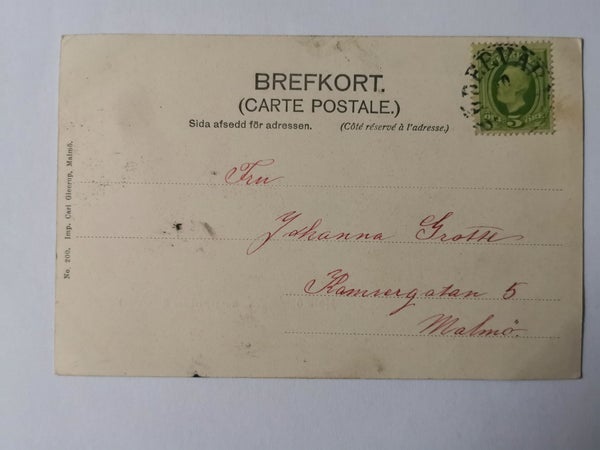 BREFKORT.
(CARTE POSTALE.)
Sida afsedd för adressen. (Côté réservé à l'adresse.)
5
Fru
Johanna Grotte
Kamrergatan 5
Malmö.
No. 200. Imp. Carl Gleerup, Malmö.